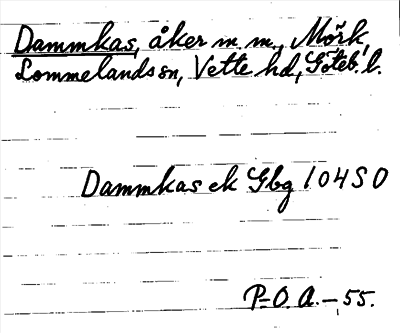 Dammkas, åker m.m., Mörk,
Lommelands sn, Vette hd, Göteb. l.
Dammkas ek Gbg 104 SO
P-O. A. -55.